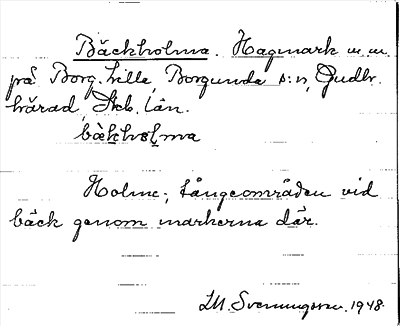 Bäckholma. Hagmark m.m.
på Borg. lilla, Borgunda s:n, Gudhr.
härad, Skb. län.
bäkholma
Holme; tångeområden vid
bäck genom markerna där.
I.M. Svenungsson. 1948.